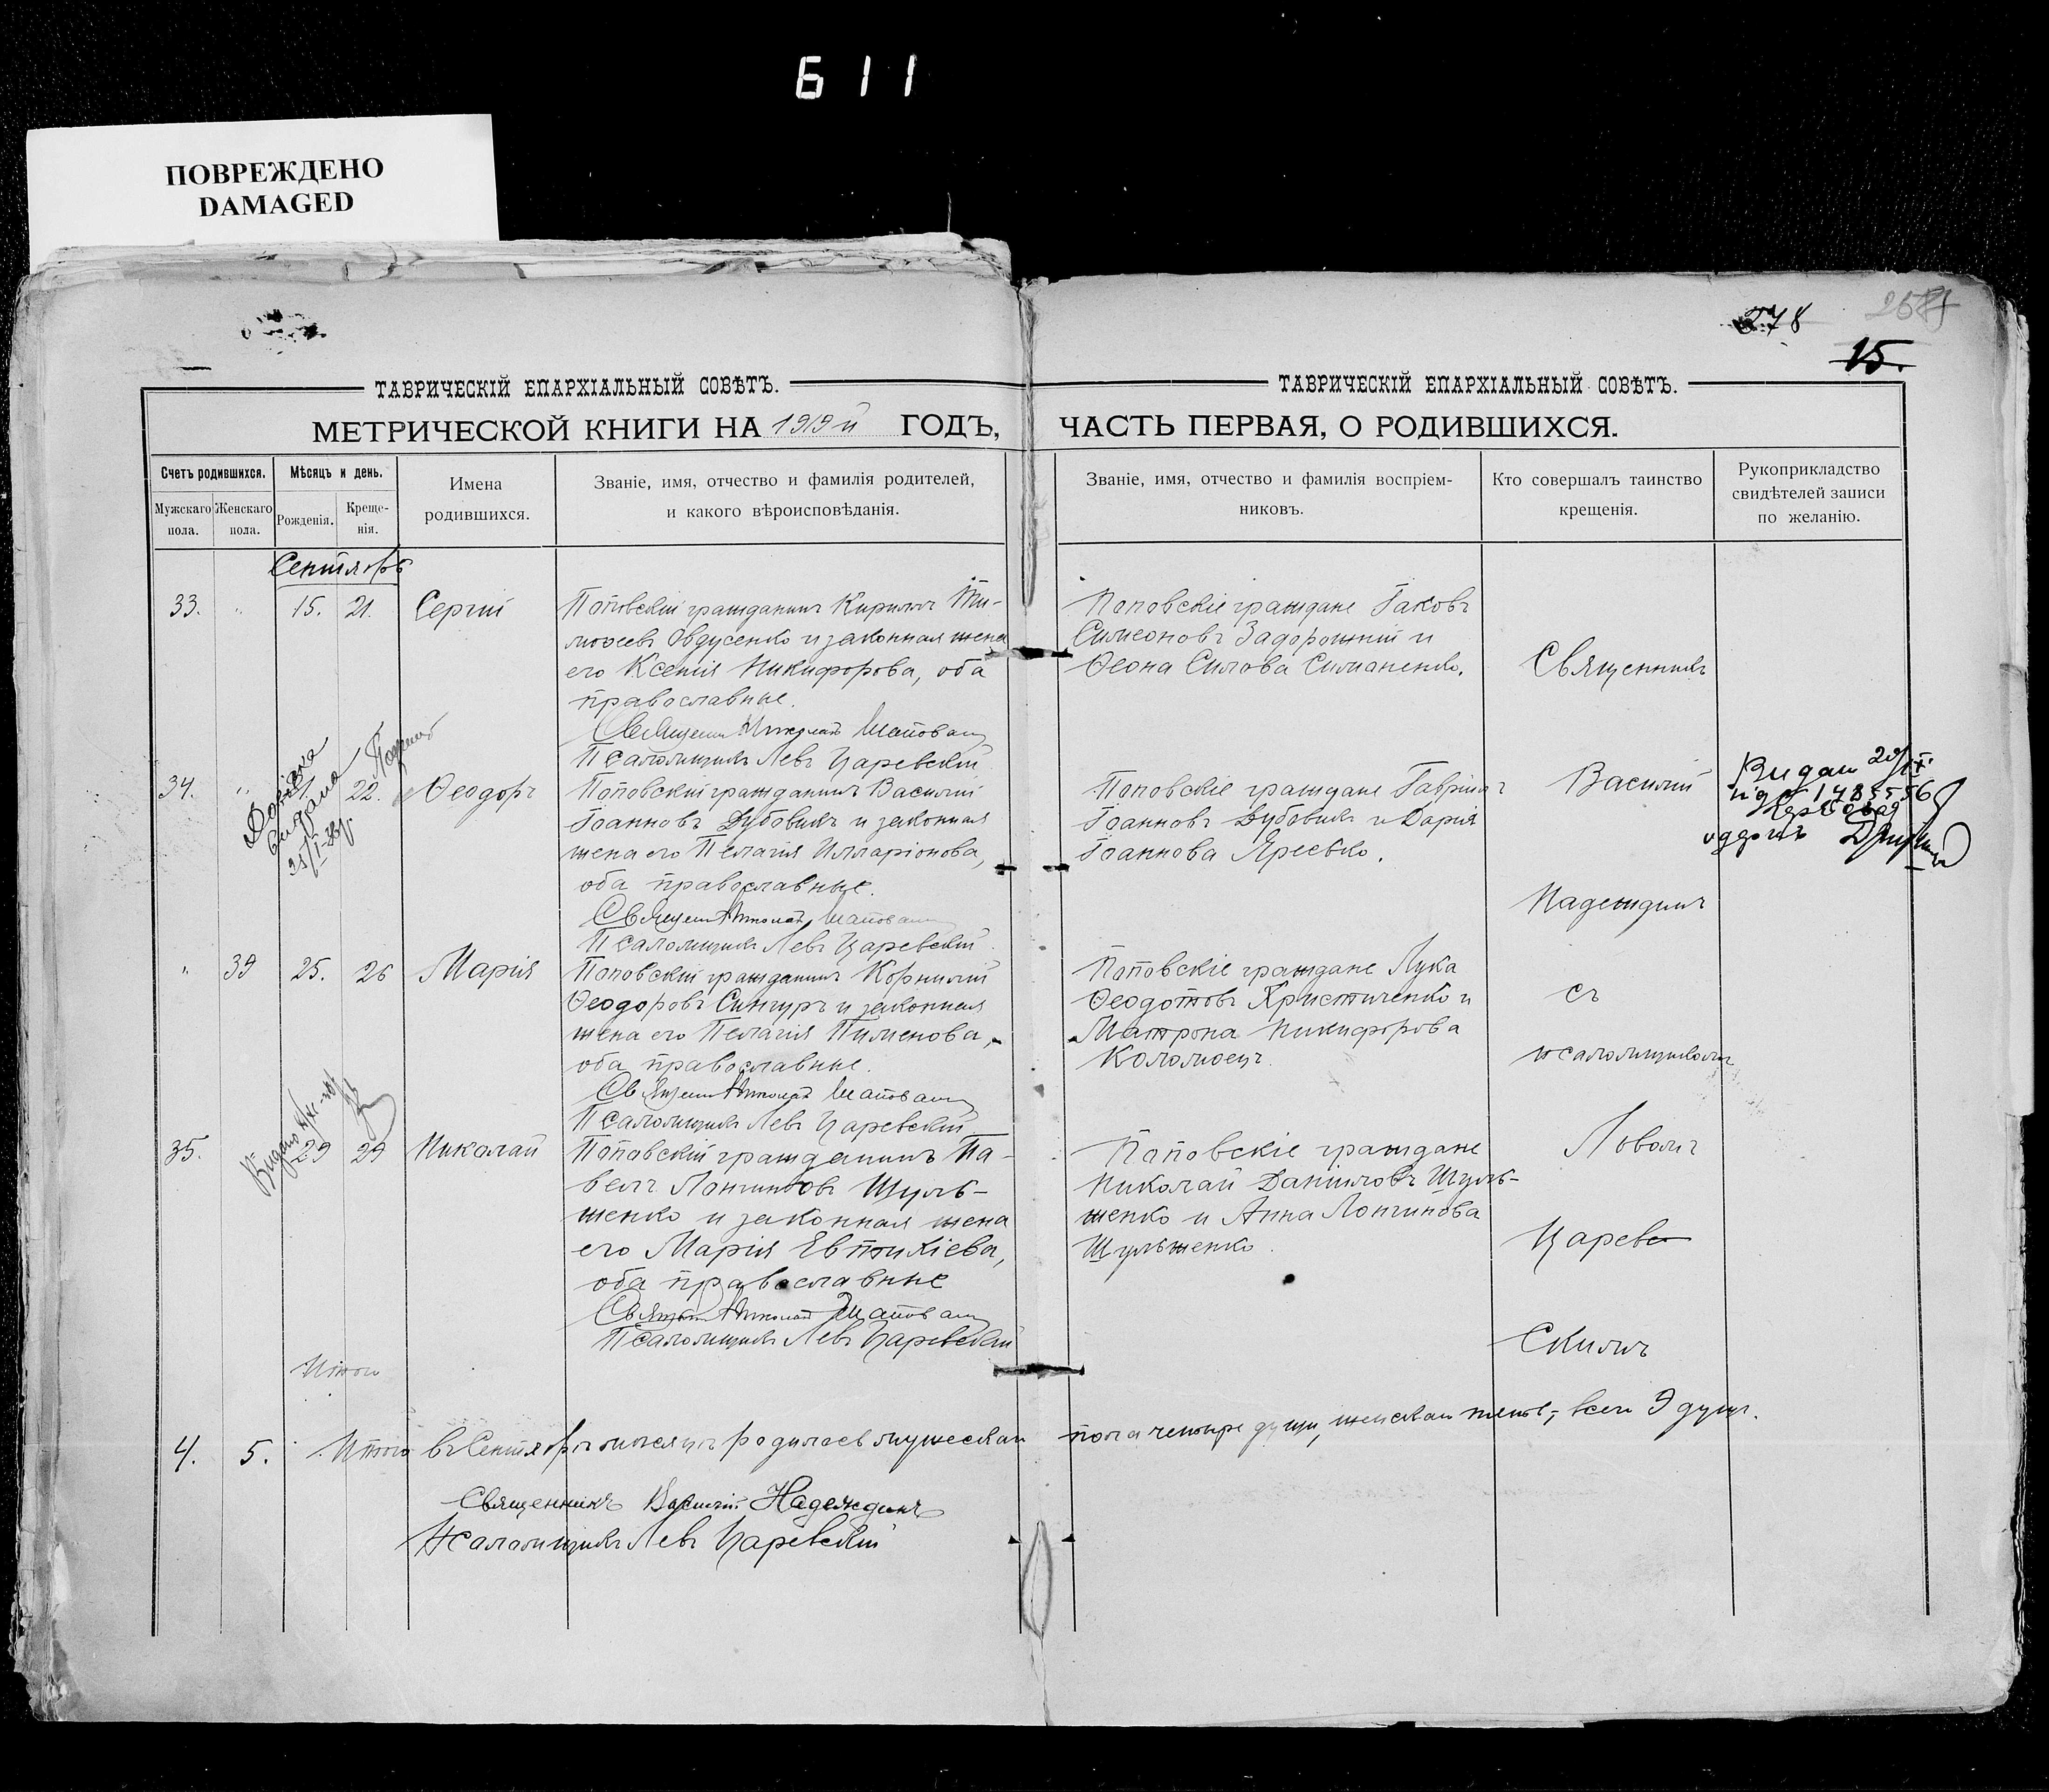 611
ПОВРЕЖДЕНО
DAMAGED
278
15.
ТАВРИЧЕСКІЙ ЕПАРХІАЛЬНЫЙ СОВѢТЪ.
МЕТРИЧЕСКОЙ КНИГИ НА 1919 й ГОДЪ,
Счетъ родившихся.
Мужскаго пола.
Женскаго пола.
Мѣсяцъ и день.
Рожденія.
Креще-
нія.
Имена
родившихся.
Званіе, имя, отчество и фамилія родителей,
и какого вѣроисповѣданія.
Сентябрь
33. " 15. 21. Сергій
Поповскій гражданинъ Кириллъ Ти-
моѳеевъ Овдусенко и законная жена
его Ксенія Никифорова, оба
православные.
Николай Шаповал
Псаломщикъ Левъ Царевскій
34. " 22. Ѳеодоръ
Довідка
видана
Поповскій гражданинъ Василій
Іоанновъ Дубовикъ и законная
жена его Пелагія Илларіонова,
оба православные.
Николай Шаповал
Псаломщикъ Левъ Царевскій
" 39 25. 26 Марія
Поповскій гражданинъ Корнилій
Ѳеодоровъ Сингуръ и законная
жена его Пелагія Пименова,
оба православные.
Николай Шаповал
Псаломщикъ Левъ Царевскій
35. 29 29 Николай
Видано
Поповскій гражданинъ Па-
велъ Лонгиновъ Шуль-
женко и законная жена
его Марія Евтихіева,
оба православные
Николай Шаповал
Псаломщикъ Левъ Царевскій
Итого
4. 5. Итого въ Сентябрѣ мѣсяцѣ родилось мужескаго
Священникъ Василій Надеждинъ
Псаломщикъ Левъ Царевскій
ТАВРИЧЕСКІЙ ЕПАРХІАЛЬНЫЙ СОВѢТЪ.
ЧАСТЬ ПЕРВАЯ, О РОДИВШИХСЯ.
Званіе, имя, отчество и фамилія воспріем-
никовъ.
Кто совершалъ таинство
крещенія.
Рукоприкладство
свидѣтелей записи
по желанію.
Поповскіе граждане Іаковъ
Симеоновъ Задорожній и
Ѳеона Силова Симаненко.
Поповскіе граждане Гавріилъ
Іоанновъ Дубовикъ и Дарія
Іоаннова Яресько.
Поповскіе граждане Лука
Ѳеодотовъ Христиченко и
Матрона Никифорова
Коломоецъ.
Поповскіе граждане
Николай Даниловъ Шуль-
женко и Анна Лонгинова
Шульженко.
Священникъ
Василій
Надеждинъ
съ
псаломщикомъ
Львомъ
Царев-
скимъ
пола четыре души, женскаго пять, всего 9 душъ.